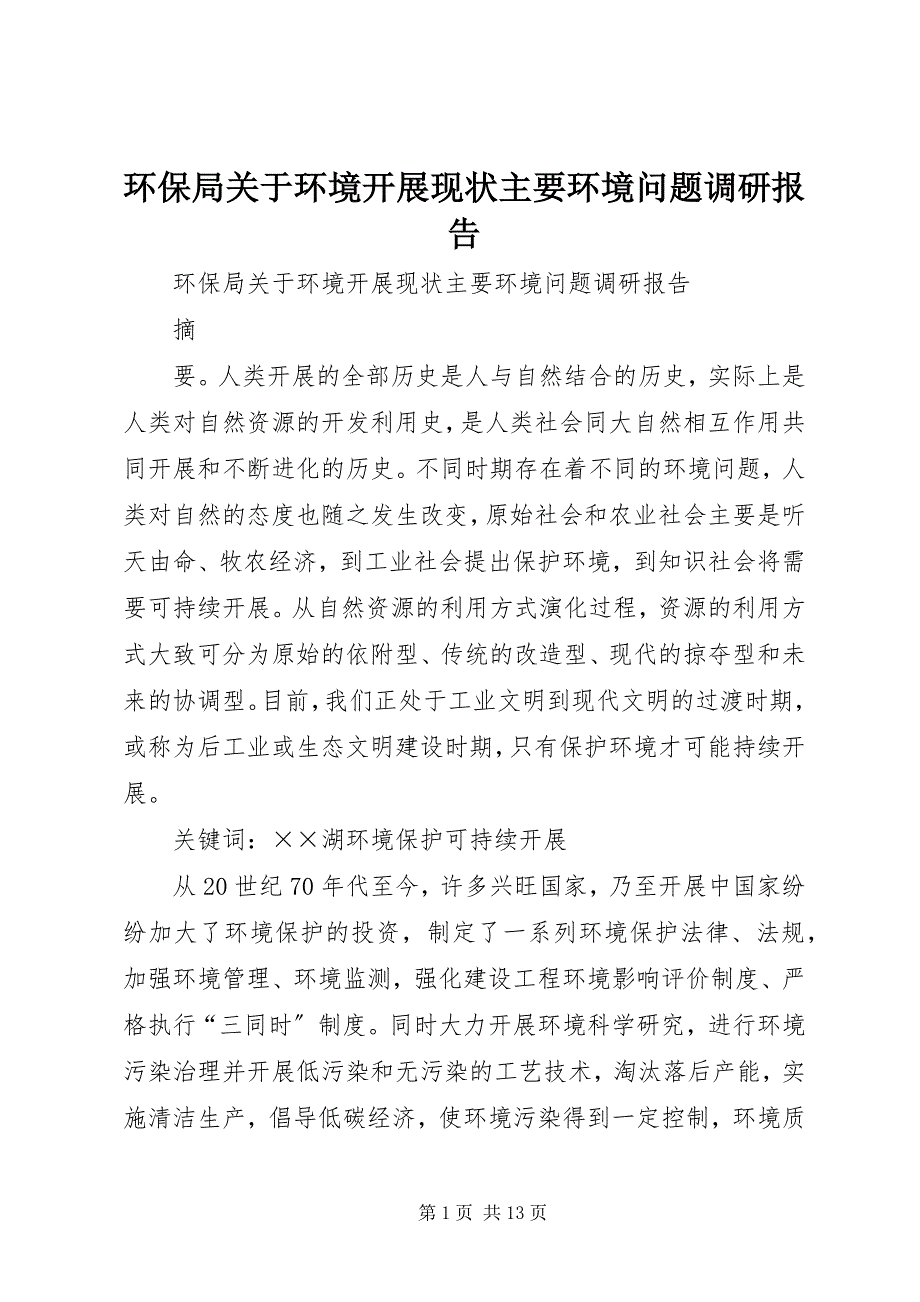 环保局关于环境开展现状主要环境问题调研报
告
环保局关于环境开展现状主要环境问题调研报告
摘
要。人类开展的全部历史是人与自然结合的历史，实际上是
人类对自然资源的开发利用史，是人类社会同大自然相互作用共
同开展和不断进化的历史。不同时期存在着不同的环境问题，人
类对自然的态度也随之发生改变，原始社会和农业社会主要是听
天由命、牧农经济，到工业社会提出保护环境，到知识社会将需
要可持续开展。从自然资源的利用方式演化过程，资源的利用方
式大致可分为原始的依附型、传统的改造型、现代的掠夺型和未
来的协调型。目前，我们正处于工业文明到现代文明的过渡时期，
或称为后工业或生态文明建设时期，只有保护环境才可能持续开
展。
关键词：××湖环境保护可持续开展
从 20 世纪 70 年代至今，许多兴旺国家，乃至开展中国家纷
纷加大了环境保护的投资，制定了一系列环境保护法律、法规，
加强环境管理、环境监测，强化建设工程环境影响评价制度、严
格执行“三同时〞制度。同时大力开展环境科学研究，进行环境
污染治理并开展低污染和无污染的工艺技术，淘汰落后产能，实
施清洁生产，倡导低碳经济，使环境污染得到一定控制，环境质
第 1 页 共 13 页